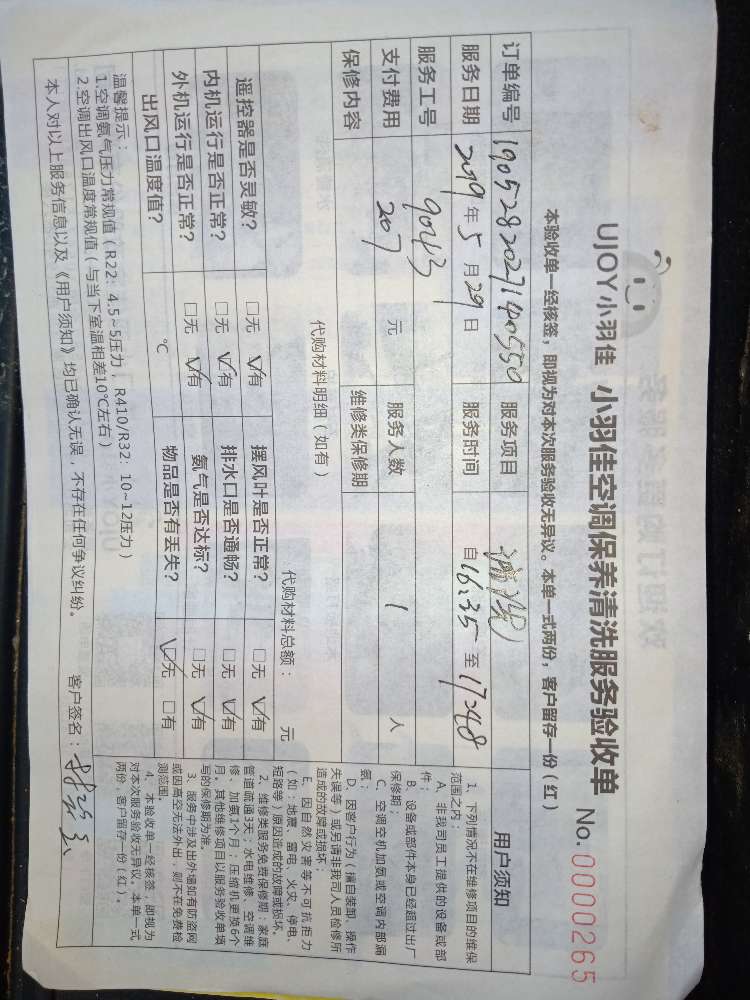 UJOY小羽佳 小羽佳空调保养清洗服务验收单
No.0000265
本验收单一经核签，即视为对本次服务验收无异议。本单一式两份，客户留存一份（红）
订单编号 1905282027140550 服务项目 清洗
服务日期 2019年5月29日 服务时间 自16:35至17:48
服务工号 9043
支付费用 207 元 服务人数 1 人
保修内容 维修类保修期
代购材料明细（如有） 代购材料总额： 元
遥控器是否灵敏？ □无 ☑有 摆风叶是否正常？ □无 ☑有
内机运行是否正常？ □无 ☑有 排水口是否通畅？ □无 ☑有
外机运行是否正常？ □无 ☑有 氨气是否达标？ □无 ☑有
出风口温度值？ ℃ 物品是否有丢失？ ☑无 □有
温馨提示：
1.空调氨气压力常规值（R22：4.5~5压力，R410/R32：10~12压力）
2.空调出风口温度常规值（与当下室温相差10℃左右）
本人对以上服务信息以及《用户须知》均已确认无误，不存在任何争议纠纷。 客户签名：
用户须知
1、下列情况不在维修项目的维保
范围之内：
A、非我司员工提供的设备或部
件；
B、设备或部件本身已经超过出厂
保修期；
C、空调空机加氨或空调内部漏
氨；
D、因客户行为（擅自装卸、操作
失误等）或另请非我司人员检修所
造成的故障或损坏
E、因自然灾害等不可抗拒力
（如：地震、雷电、火灾、停电、
短路等）原因造成的故障或损坏。
2、维修类服务免费保修期：家庭
管道疏通3天；水电维修、空调维
修、加氨1个月；压缩机更换6个
月。其他维修项目以服务验收单填
写的保修期为准。
3、服务中涉及出外墙如有防盗网
或因高空无法外出，则不在免费检
测范围。
4、本验收单一经核签，即视为
对本次服务验收无异议。本单一式
两份，客户留存一份（红）。